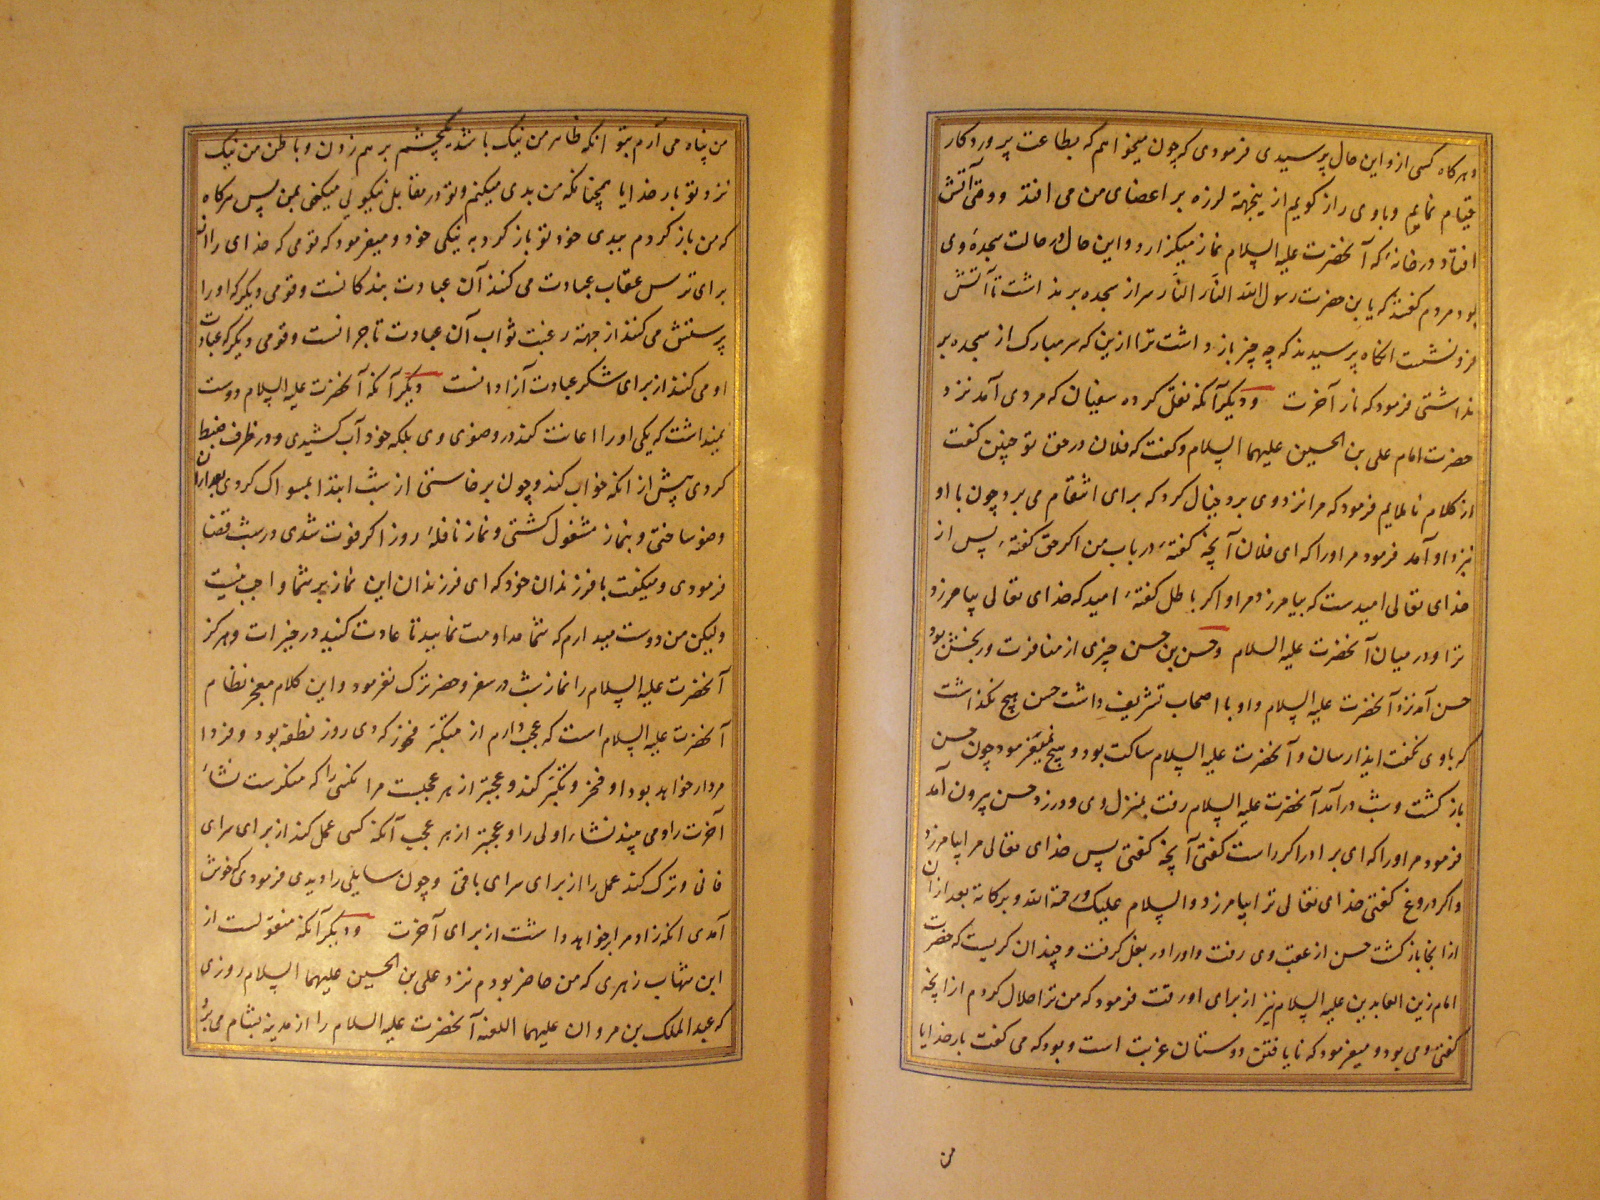 و هر کاه کسی ازو این حال پرسیدی فرمودی که چون میخواهم که بطاعت پروردکار
قیام نمایم و با وی راز کویم از ینجهة لرزه بر اعضای من می افتد و وقتی آتش
افتاد در خانهٔ که آنحضرت علیه السلام نماز میکزارد و این حال در حالت سجدهٔ وی
بود مردم کفتند که یا بن حضرت رسول الله النّار النّار سر از سجده بر نداشت تا آتش
فرو نشست انکاه پرسیدند که چه چیز باز داشت ترا ازین که سر مبارک از سجده بر
نداشتی فرمود که نار آخرت و دیکر آنکه نقل کرده سفیان که مردی آمد نزد
حضرت امام علی بن الحسین علیهما السلام و کفت که فلان در حق تو چنین کفت
از کلام ناملایم فرمود که مرا نزد وی بر و خیال کرد که برای انتقام می برد چون با او
نزد او آمد فرمود مر او را که ای فلان آنچه کفتهٔ در باب من اکر حق کفتهٔ پس از
خدای تعالی امیدست که بیامرزد مرا و اکر باطل کفتهٔ امید که خدای تعالی بیامرزد
ترا و در میان آنحضرت علیه السلام و حسن بن حسن چیزی از منافرت و رنجش بود
حسن آمد نزد آنحضرت علیه السلام و او با اصحاب تشریف داشت حسن هیچ نکذاشت
که با وی نکفت ایذا رسان و آنحضرت علیه السلام ساکت بود و هیچ نمیفرمود چون حسن
باز کشت و شب درآمد آنحضرت علیه السلام رفت بمنزل وی و در زد حسن بیرون آمد
فرمود مر او را که ای برادر اکر راست کفتی آنچه کفتی پس خدای تعالی مرا بیامرزد
و اکر دروغ کفتی خدای تعالی ترا بیامرزد و السلام علیک و رحمة الله و برکاته بعد از آن
از انجا باز کشت حسن از عقب وی رفت و او را در بغل کرفت و چندان کریست که حضرت
امام زین العابدین علیه السلام نیز از برای او رقت فرمود که من ترا حلال کردم از آنچه
کفتی و می بود و میفرمود که نا یافتن دوستان غربت است و بود که می کفت بار خدایا
من
من پناه می آرم بتو انکه ظاهر من نیک باشد چشم بر هم زدن و باطن من نیک
نزد تو بار خدایا همچنانکه من بدی میکنم و تو در مقابل نیکویی میکنی بمن پس هر کاه
که من باز کردم ببدی خود تو باز کرد به نیکی خود و میفرمود که قومی که خدای را
برای ترس عقاب عبادت می کنند آن عبادت بندکانست و قومی دیکر که او را
پرستش می کنند از جهة رغبت ثواب آن عبادت تاجرانست و قومی دیکر که عبادت
او می کنند از برای شکر عبادت آزادانست دیکر آنکه آنحضرت علیه السلام دوست
نمیداشت که یکی او را اعانت کند در وضوی وی بلکه خود آب کشیدی و در ظرف ضبط
کردی پیش از انکه خواب کند و چون بر خاستی از شب ابتدا بمسواک کردی بعد از آن
وضو ساختی و بنماز مشغول کشتی و نماز نافلهٔ روز اکر فوت شدی در شب قضا
فرمودی و میکفت با فرزندان خود که ای فرزندان این نماز بر شما واجب نیست
ولیکن من دوست میدارم که شما مداومت نمایید تا عادت کنید در خیرات و هرکز
آنحضرت علیه السلام را نماز شب در سفر و حضر ترک نفرمود و این کلام معجز نظام
آنحضرت علیه السلام است که عجب دارم از متکبّر فخور که دی روز نطفه بود و فردا
مردار خواهد بود او فخر و تکبّر کند و عجبتر از هر عجبیست مرا کسی را که منکرست نشأ
آخرت را و می بیند نشاء اولی را و عجبتر از هر عجب آنکه کسی عمل کند از برای سرای
فانی و ترک کند عمل را از برای سرای باقی و چون سایلی را دیدی فرمودی که خوش
آمدی انکه زاد مرا بر خواهد داشت از برای آخرت و دیکر آنکه منقولست از
ابن شهاب زهری که من حاضر بودم نزد علی بن الحسین علیهما السلام روزی
که عبد الملک بن مروان علیهما اللعنه آنحضرت علیه السلام را از مدینه بشام می برد